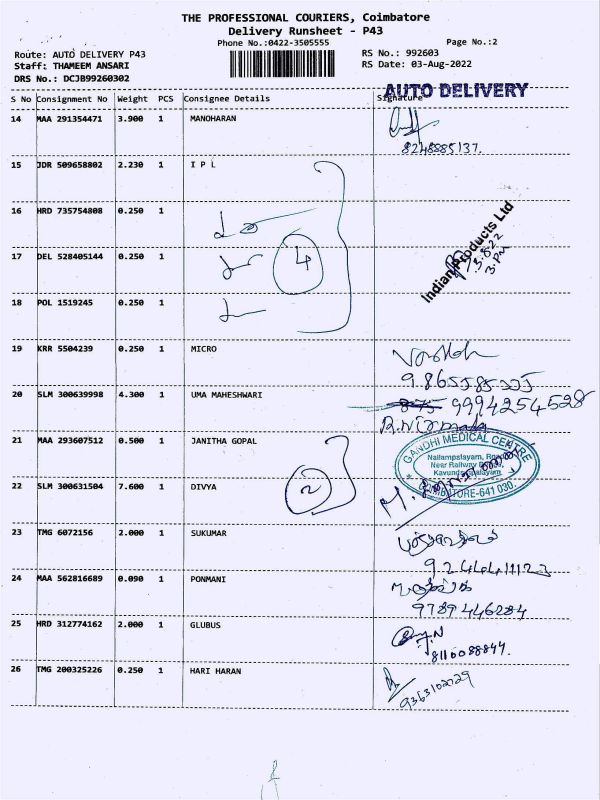 THE PROFESSIONAL COURIERS, Coimbatore
Delivery Runsheet - P43
Phone No.:0422-3505555
Page No.:2
Route: AUTO DELIVERY P43
RS No.: 992603
Staff: THAMEEM ANSARI
RS Date: 03-Aug-2022
DRS No.: DCJB99260302
AUTO DELIVERY
S No Consignment No Weight PCS Consignee Details Signature
14 MAA 291354471 3.900 1 MANOHARAN
8248885137.
15 JDR 509658802 2.230 1 I P L
16 HRD 735754808 0.250 1
4
Indian Products Ltd
3.8.22
3.PM
17 DEL 528405144 0.250 1
18 POL 1519245 0.250 1
19 KRR 5504239 0.250 1 MICRO
20 SLM 300639998 4.300 1 UMA MAHESHWARI
9994254528
R.Nirmala
21 MAA 293607512 0.500 1 JANITHA GOPAL
GANDHI MEDICAL CENTRE
Nallampalayam, Road
Near Railway
Kavundampalayam
COIMBATORE-641 030.
22 SLM 300631504 7.600 1 DIVYA
2
23 TMG 6072156 2.000 1 SUKUMAR
24 MAA 562816689 0.090 1 PONMANI
9789446284
25 HRD 312774162 2.000 1 GLUBUS
8110088844.
26 TMG 200325226 0.250 1 HARI HARAN
9363102029